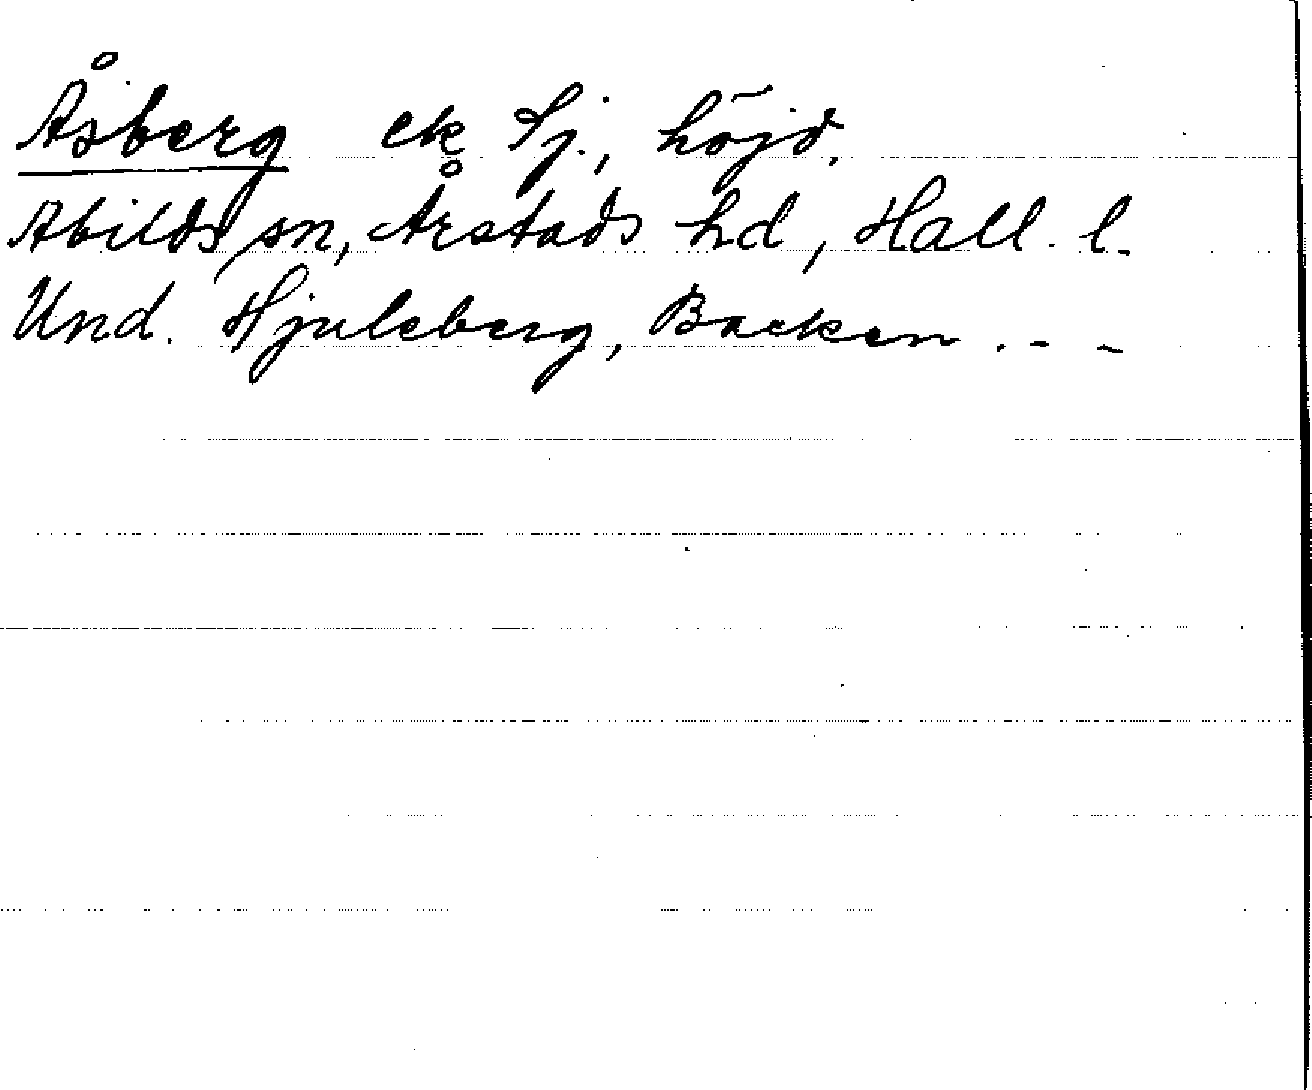 Åsberg ek Sj., höjd,
Abilds sn, Årstads hd, Hall. l.
Und. Hjuleberg, Backen . - -